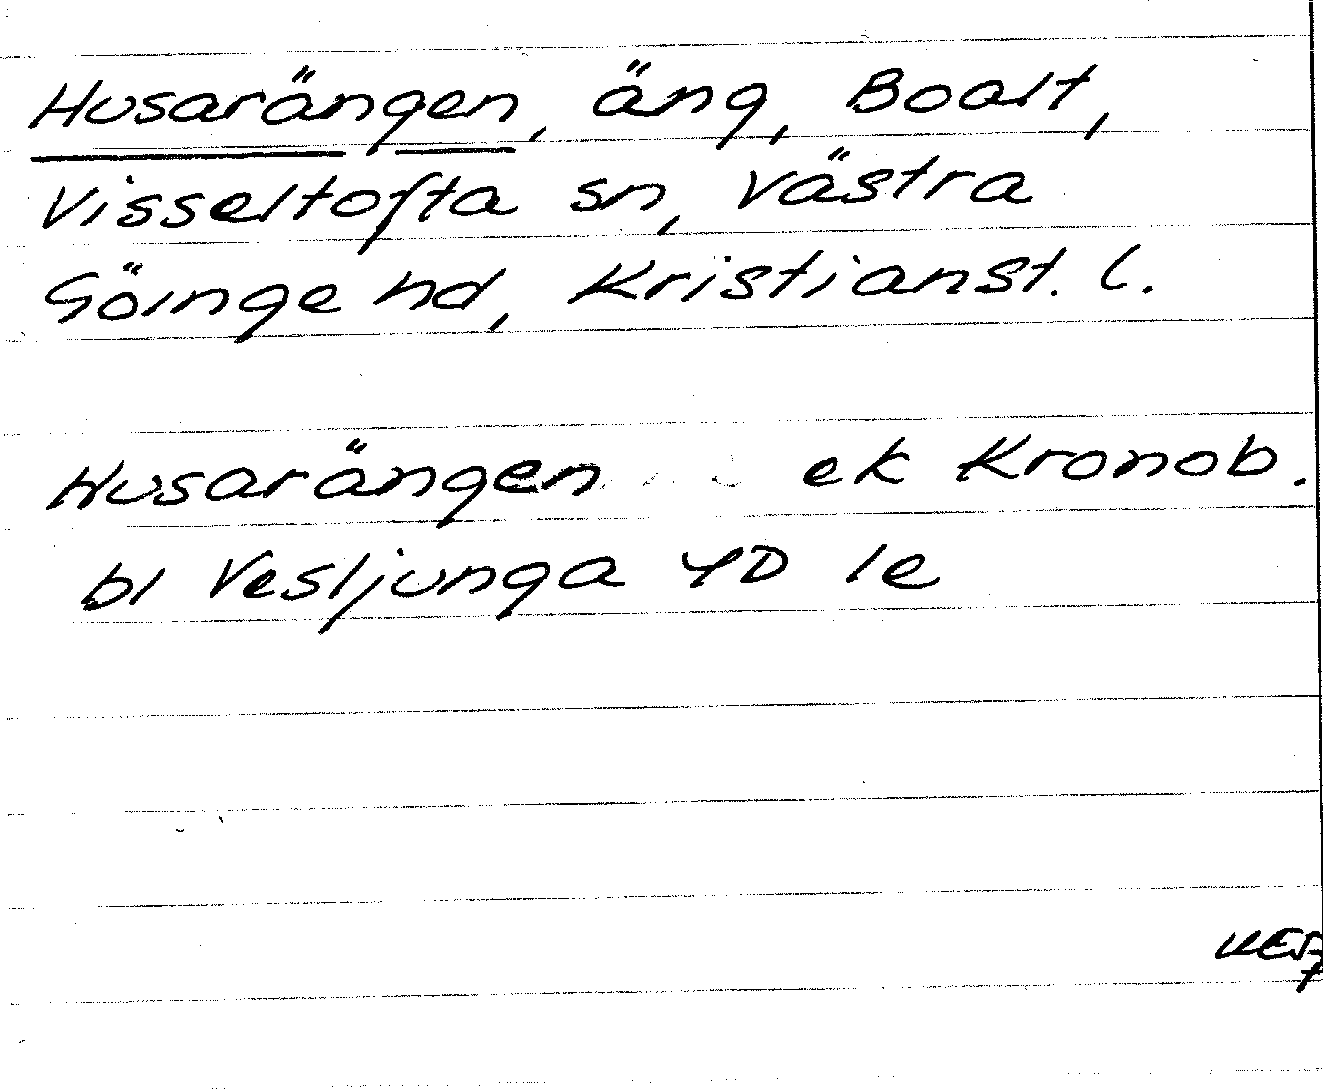 Husarängen, äng, Boalt,
Visseltofta sn, Västra
Göinge hd, Kristianst. l.
Husarängen ek Kronob.
bl Vesljunga 4D 1e